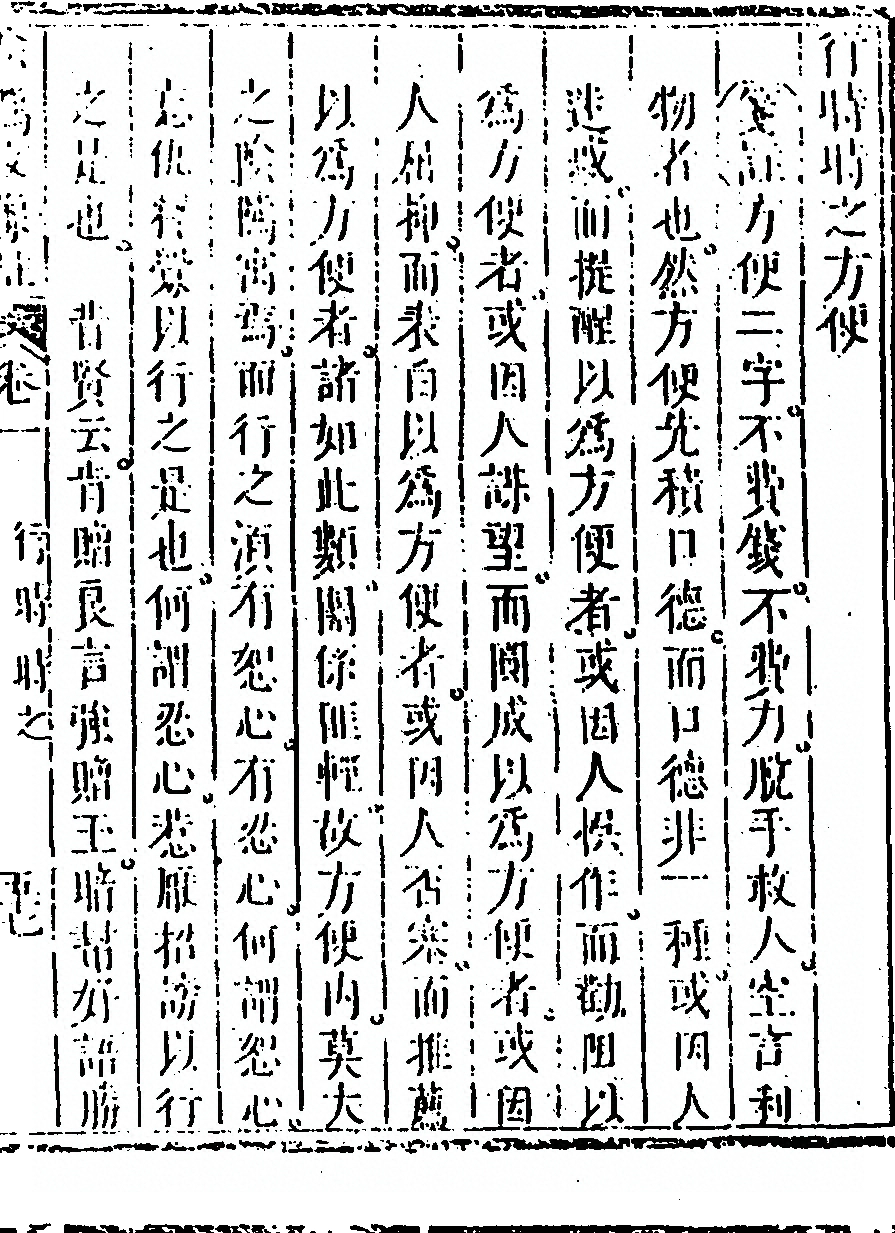 行時時之方便
箋註方便二字不費錢不費力啟手救人空言利
物者也然方便先積口德而口德非一種或因人
迷惑而提醒以爲方便者或因人悞作而勸阻以
爲方便者或因人誅望而圓成以爲方便者或因
人屈抑而表白以爲方便者或因人否塞而推薦
以爲方便者諸如此類關係匪輕故方便內莫大
之陰隲寓焉而行之湏有恕心有忍心何謂恕心
忘仇釋憾以行之是也何謂忍心惹厭招謗以行
之是也　昔賢云背贈良言強贈玉暗幫好語勝
卷一
行時時之